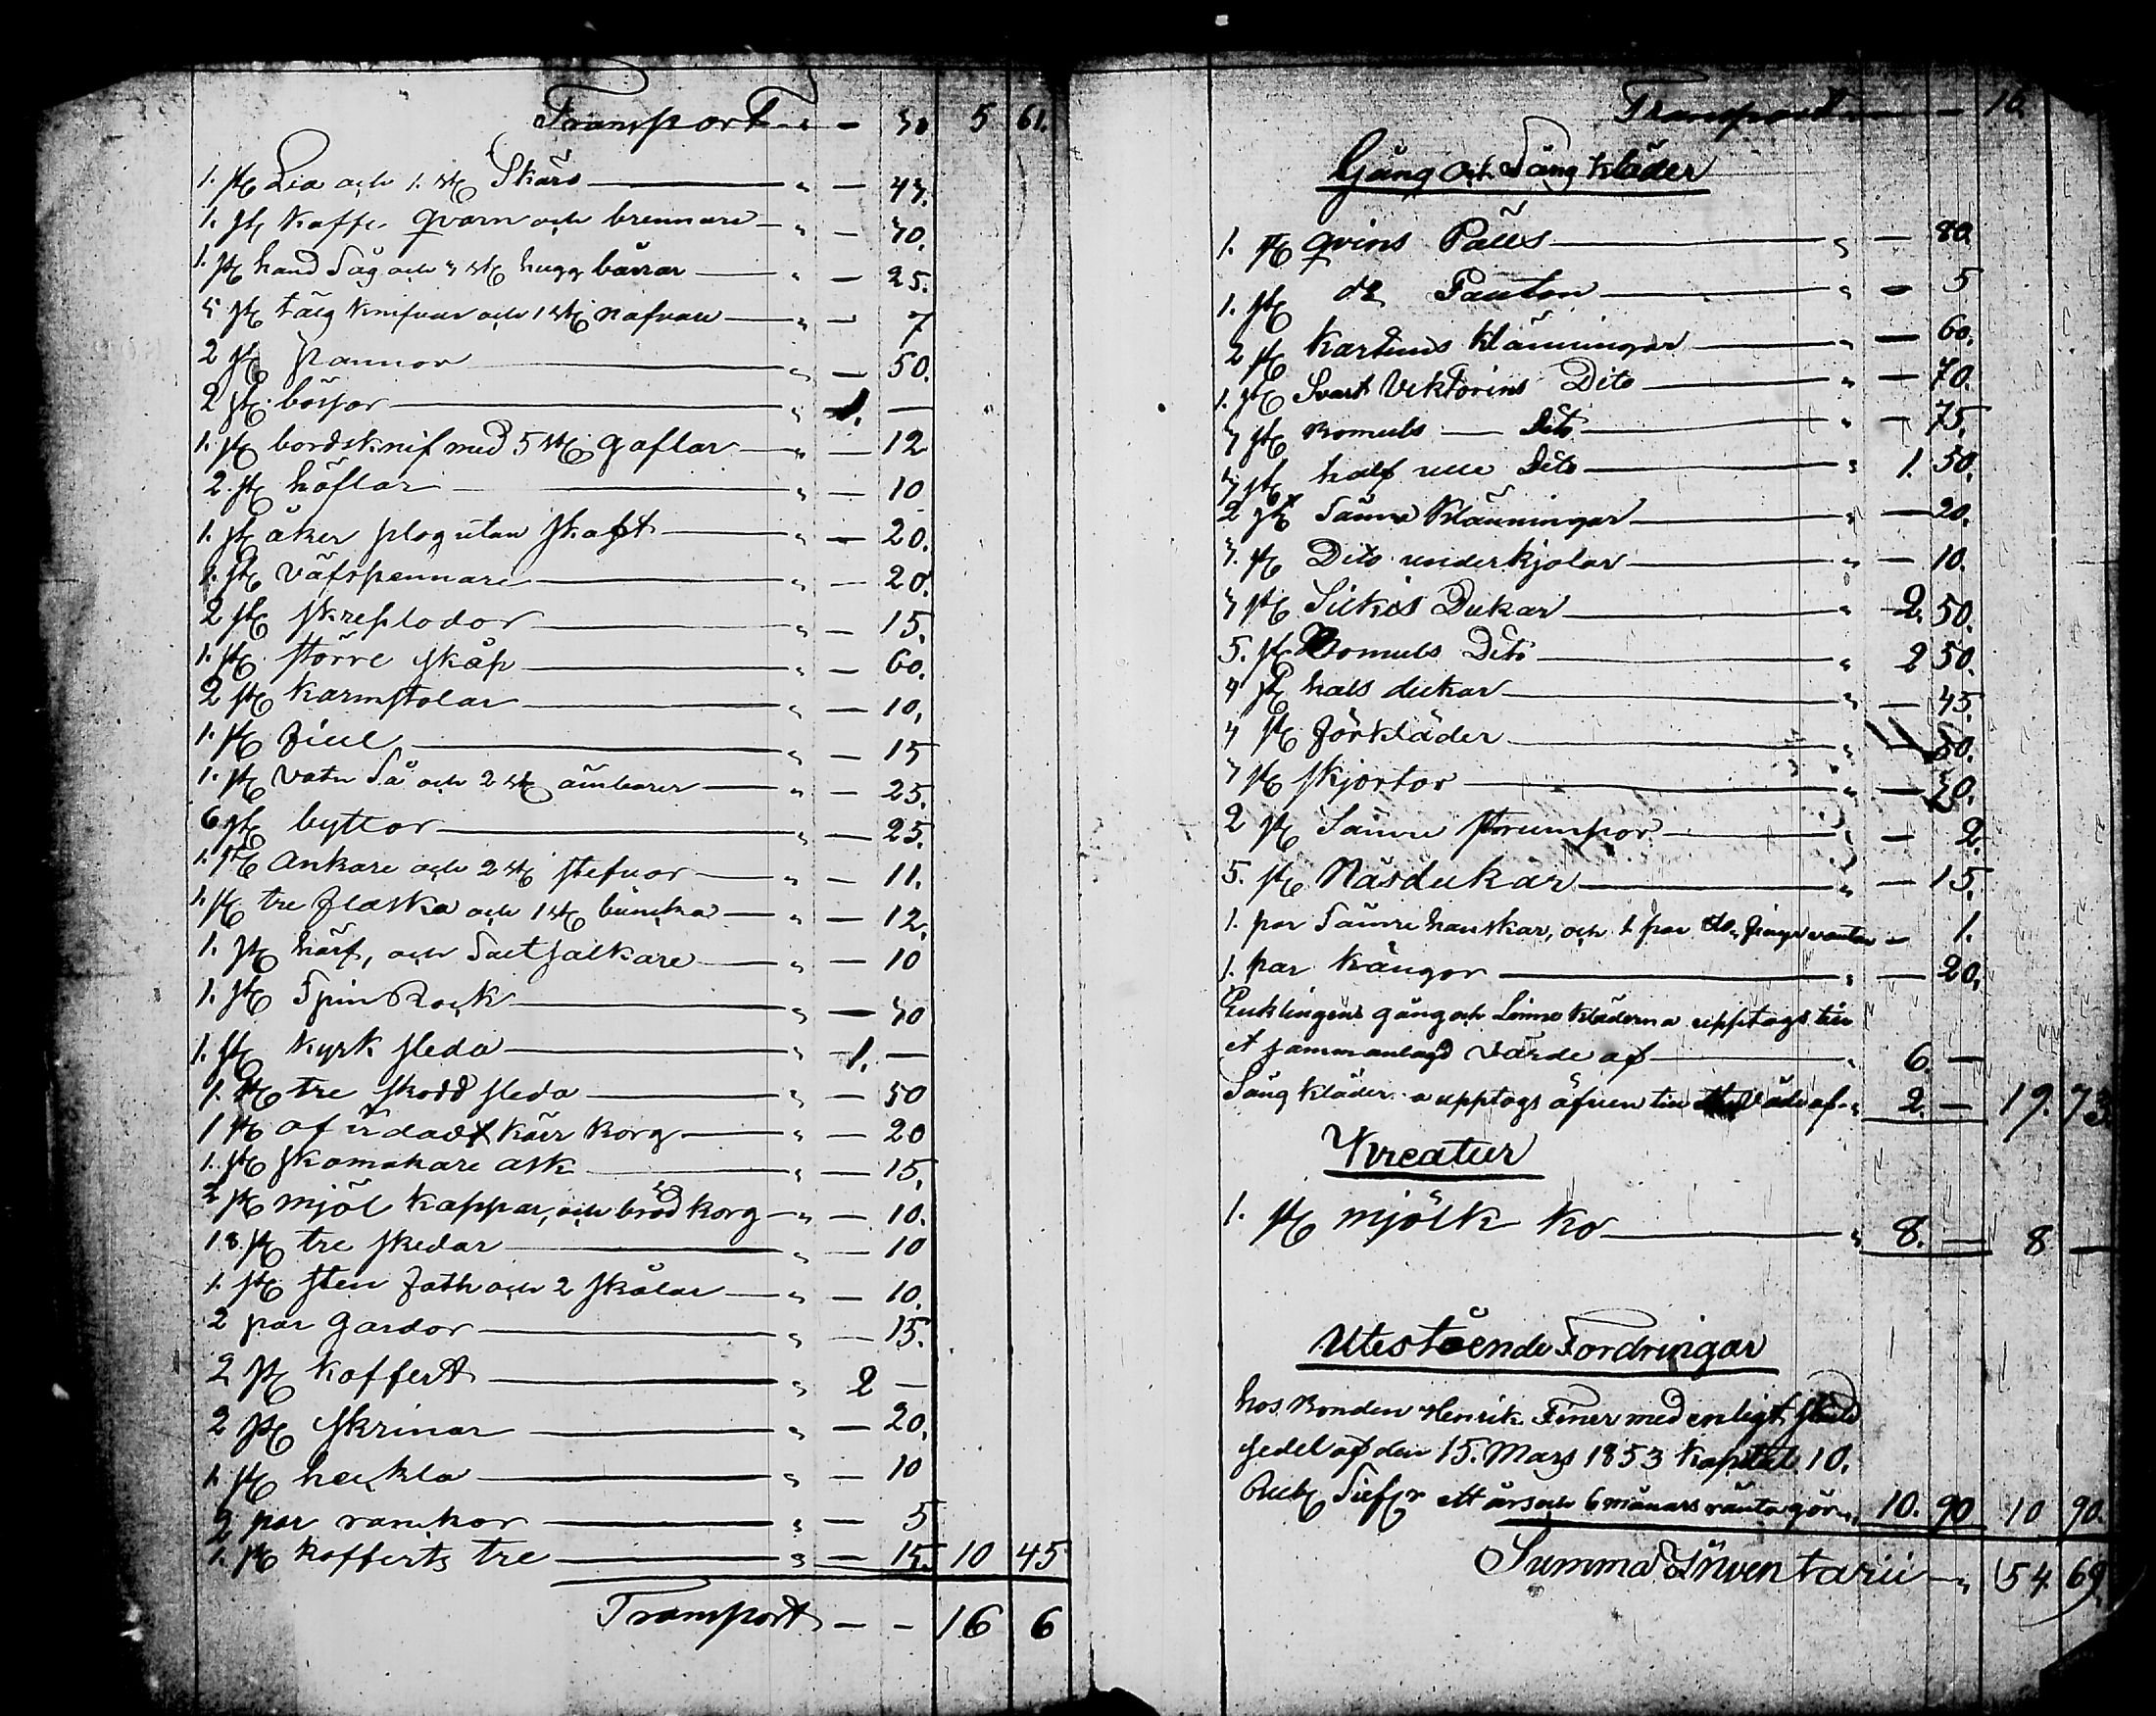 Transport " — 30 5 61.
1. st Lia och 1. st Skära " — 43.
1. st Kaffe qvarn och brennare " — 30.
1. st hand Såg och 3 st hugg bårrar " — 25.
3 st tälg Knifvar och 1 st nafvare " — 7
2 st pannor " — 50.
2 st börsor " 1. —
1. st bordsknif med 5 st gaflar " — 12
2. st höflar " — 10
1. st åker plog utan skaft " — 20.
1. st väfspennare " — 20.
2 st skreplodor " — 15.
1. st större skåp " — 60.
2 st Karmstolar " — 10,
1. st fiul " — 15
1. st Vatn Så och 2 st ämbarer " — 25.
6 st byttor " — 25.
1. st ankare och 2 st stefvor " — 11.
1. st tre flaska och 1 st buncka " — 12.
1. st härf, och Salt salkare " — 10
1. st Spin Rock " — 30
1. st Kyrk sleda " 1. —
1. st tre skodd sleda " — 50
1 st af irdadt Kärr Korg " — 20
1. st skomakare ask — 15,
2 st mjöl Kappar, och bröd korg " — 10.
18. st tre skedar " — 10
1. st sten fath och 2 skålar " — 10.
2 par gardor " — 15.
2 st Koffert " 2 —
2 st skrinar " — 20.
1. st heckla " — 10
2 par ramkor " — 5
1. st Kofferts tre " — 15. 10 45
Transport — — 16 6
Transport — 16.
Gång och Säng Kläder
1. st qvins Päls " — 80
1. st do " — 5
2 st Kartuns Klänningar " — 60.
1. st Svart Viktorins Dito " — 70.
3 st Bomuls — Dito " — 75.
3 st half ulle Dito " 1. 50.
2 st Sämre Klänningar " — 20.
3. st Dito underkjolar " — 10.
3 st Silkes Dukar " 2. 50.
5. st Bomuls Dito " 2 50.
4 st hals dukar " — 45.
4 st förkläder " — 30.
3 st skjortor " — 30.
2 st Sämre strumpor " — 2.
5. st Näsdukar " — 15.
1. par Sämre hanskar, och 1 par do finger vantar — 1.
1. par Kängor " — 20.
Enklingens gång och Linne Kläderna upptogs till
et sammanlagd Värde af " 6. —
Säng Kläder a upptogs äfven till Väde af " 2. — 19. 73
Kreatur
1. st mjölk Ko " 8. — 8 —
Utestående Fordringar
hos Bonden Henrik Finer med enligt skuld
sedel af den 15. Mars 1853 Kapital 10.
Rub Silfr ett års och 6 månars ränta gör " 10. 90 10 90.
Summa Inventarii " 54 69.